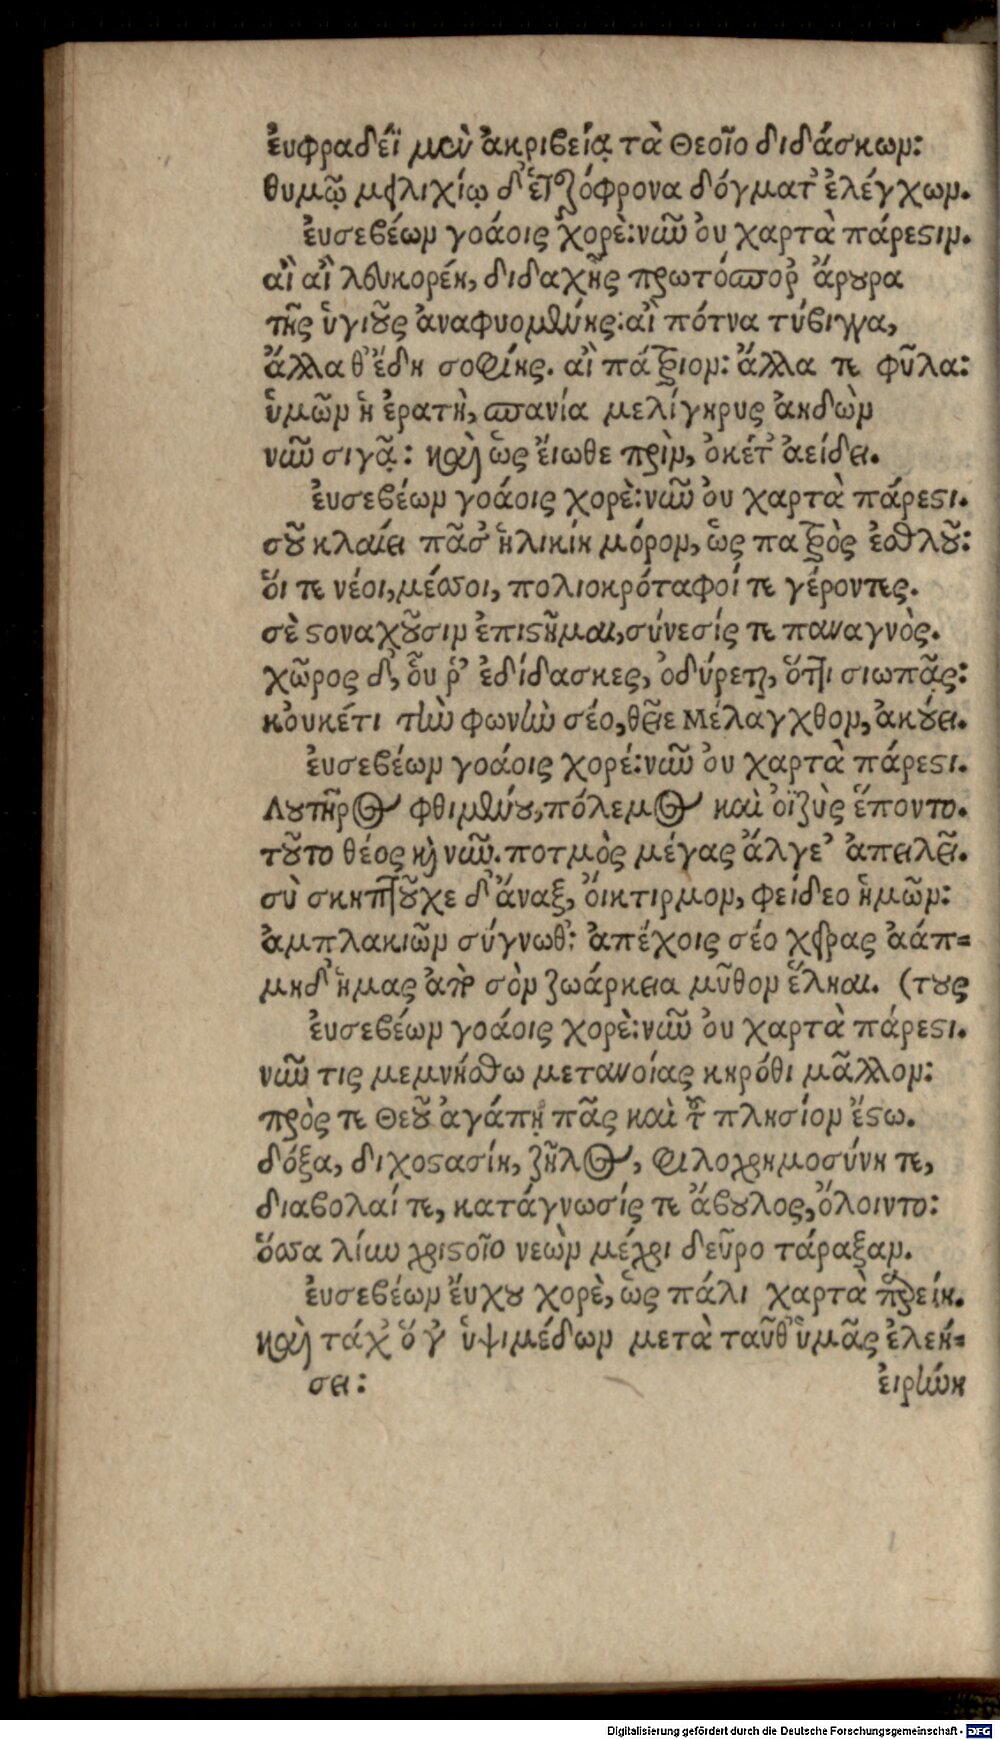 ἐυφραδέϊ μὲν ἀκριβείᾳ τὰ Θεοῖο διδάσκων:
θυμῷ μειλιχίῳ δ' ἑτερόφρονα δόγματ' ἐλέγχων.
ἐυσεβέων γοάοις χορὲ: νῦν ὀυ χαρτὰ πάρεστιν.
αἲ αἲ λευκορέη, διδαχῆς πρωτόσπορ' ἄρουρα
τῆς ὑγιοῦς ἀναφυομένης: αἲ πότνα τύβιγγα,
ἄλλα θ' ἕδη σοφίης. αἲ πάτριον: ἄλλα τε φῦλα:
ὑμῶν ἡ ἐρατὴ, σπανία μελίγηρυς ἀηδὼν
νῦν σιγᾷ: καὶ ὡς ἔιωθε πρὶν, ὀκέτ' ἀείδει.
ἐυσεβέων γοάοις χορὲ: νῦν ὀυ χαρτὰ πάρεστι.
σοῦ κλαίει πᾶσ' ἡλικίη μόρον, ὡς πατρὸς ἐσθλοῦ:
ὅι τε νέοι, μέσσοι, πολιοκρόταφοί τε γέροντες.
σὲ στοναχοῦσιν ἐπιστῆμαι, σύνεσίς τε παναγνὸς.
χῶρος δ', ὗυ ῥ' ἐδίδασκες, ὀδύρεται, ὅττι σιωπᾷς:
κ'ουκέτι τὴν φωνὴν σέο, θεῖε Μέλαγχθον, ἀκούει.
ἐυσεβέων γοάοις χορέ: νῦν ὀυ χαρτὰ πάρεστι.
Λουτῆρος φθιμένου, πόλεμος καὶ ὀϊζὺς ἕποντο.
τοῦτο θέος καὶ νῦν. ποτμὸς μέγας ἄλγε' ἀπειλεῖ.
σὺ σκηπτοῦχε δ' ἄναξ, ὄικτιρμον, φείδεο ἡμῶν:
ἀμπλακιῶν σύγνωθ': ἀπέχοις σέο χεῖρας ἀάπ=
μηδ' ἡμας ἄτερ σὸν ζωάρκεια μῦθον ἕληαι. (τους
ἐυσεβέων γοάοις χορὲ: νῦν ὀυ χαρτὰ πάρεστι.
νῦν τις μεμνήσθω μετανοίας κηρόθι μᾶλλον:
πρὸς τε Θεοῦ ἀγάπῃ πᾶς καὶ τῶν πλησίον ἔστω.
δόξα, διχοστασίη, ζῆλος, φιλοχρημοσύνη τε,
διαβολαί τε, κατάγνωσίς τε ἄβουλος, ὄλοιντο:
ὅσσα λίην χριστοῖο νεὼν μέχρι δεῦρο τάραξαν.
ἐυσεβέων ἔυχου χορὲ, ὡς πάλι χαρτὰ παρείη.
καὶ τάχ' ὅ γ' ὑψιμέδων μετὰ ταῦθ' ὑμᾶς ἐλεή=
σει: ἐιρήνη
Digitalisierung gefördert durch die Deutsche Forschungsgemeinschaft - DFG